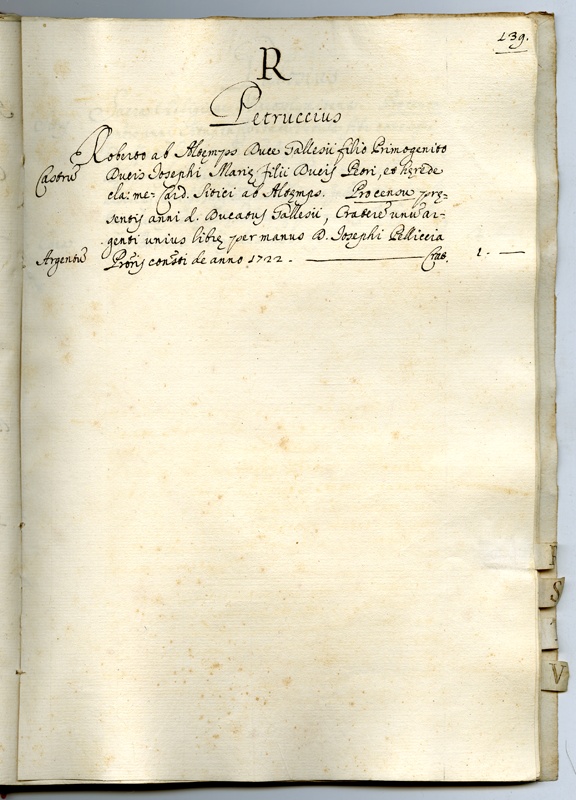 139.
R
Petruccius
Roberto ab Altemps Duce Gallesii filio Primogenito
Castrū Ducis Josephi Marię filii Ducis Petri, et hęrede
cla: me: Card. Sitici ab Altemps. Pro censu prę-
sentis anni d. Ducatus Gallesii, Craterē unū ar-
genti unius librę per manus D. Josephi Pelliccia
Argentū Proris consti de anno 1722. Crat. 1. —
R
S
T
V